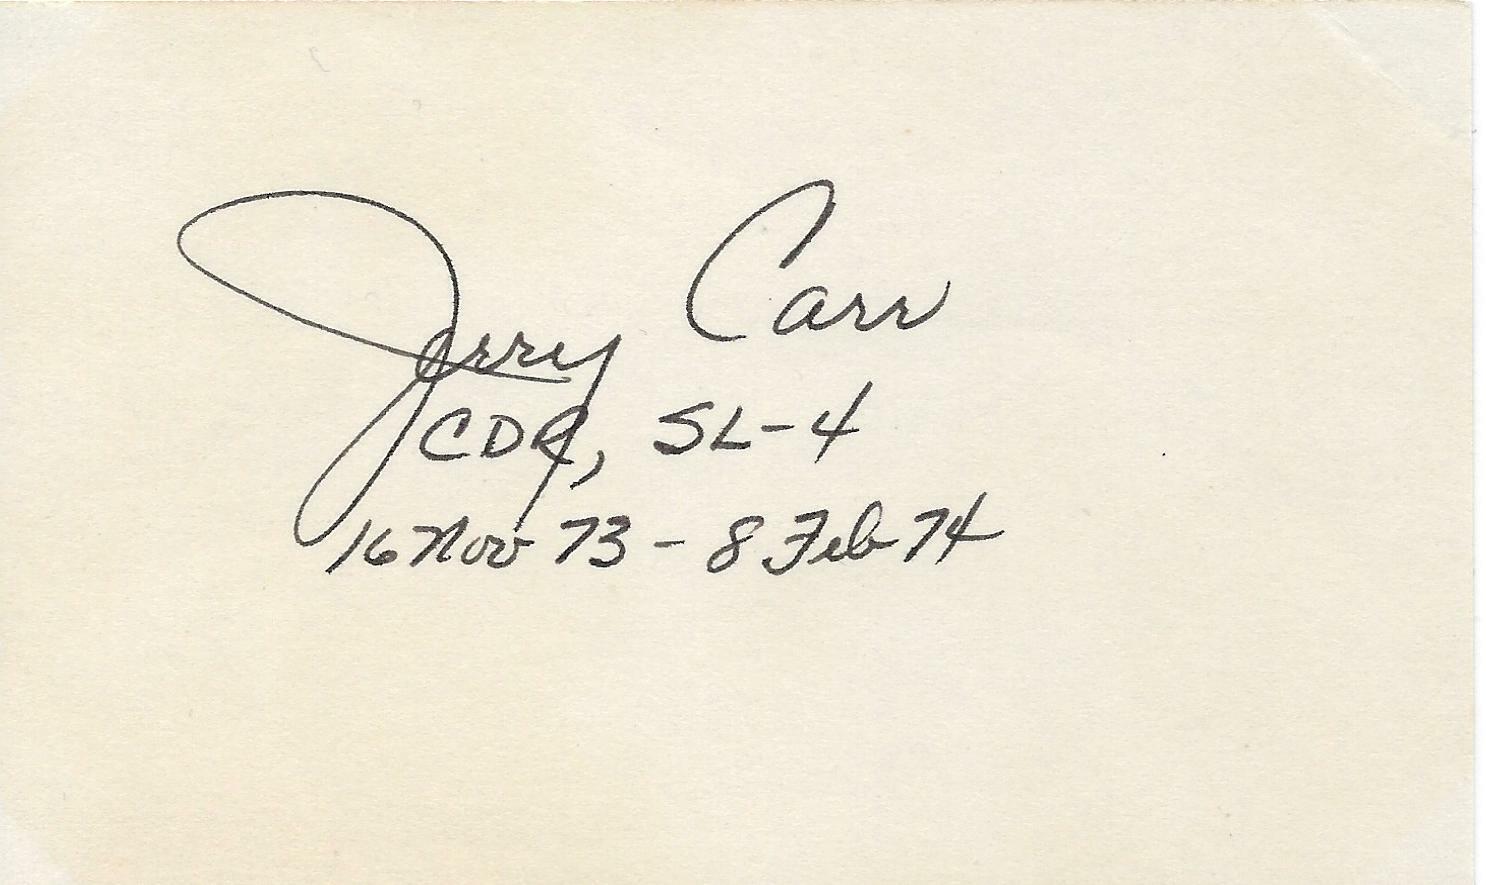 Jerry Carr
CDR, SL-4
16 Nov 73 - 8 Feb 74